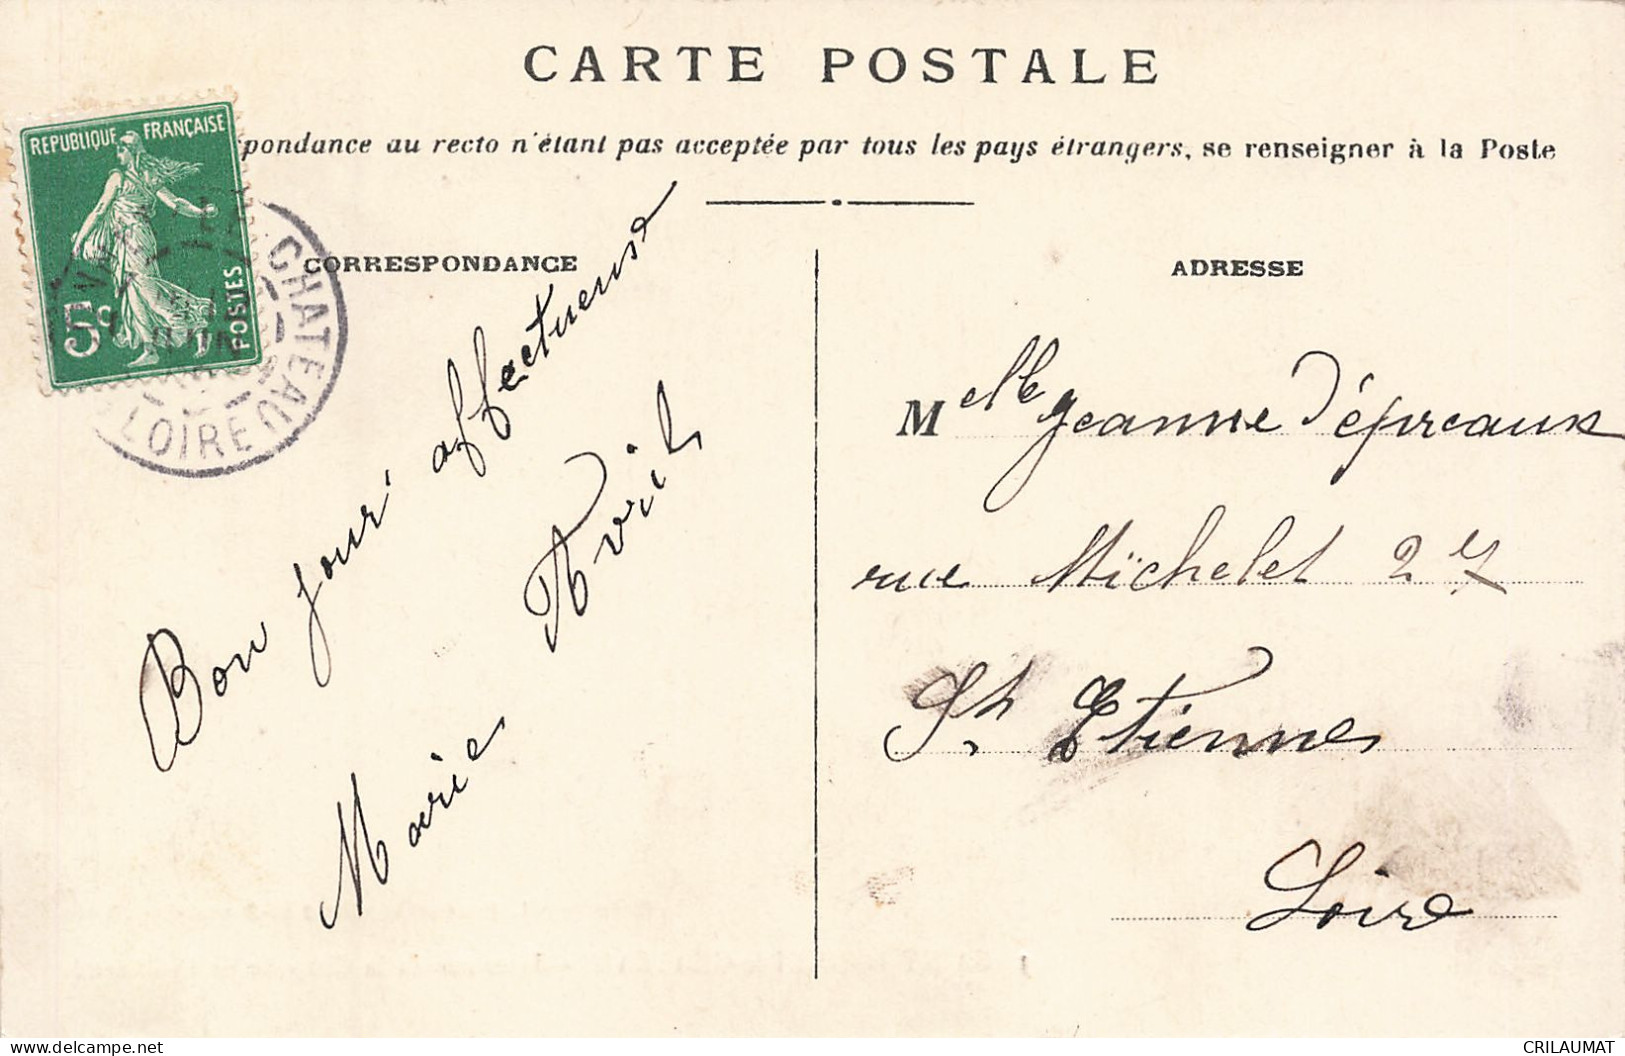 CARTE POSTALE
pondance au recto n'étant pas acceptée par tous les pays étrangers, se renseigner à la Poste
REPUBLIQUE FRANÇAISE
5c
POSTES
CHATEAU
LOIRE
CORRESPONDANCE
Bon jour affectueuse
Marie Avril
ADRESSE
Melle Jeanne Dépreaux
rue Michelet 27
St Etienne
Loire
CRILAUMAT